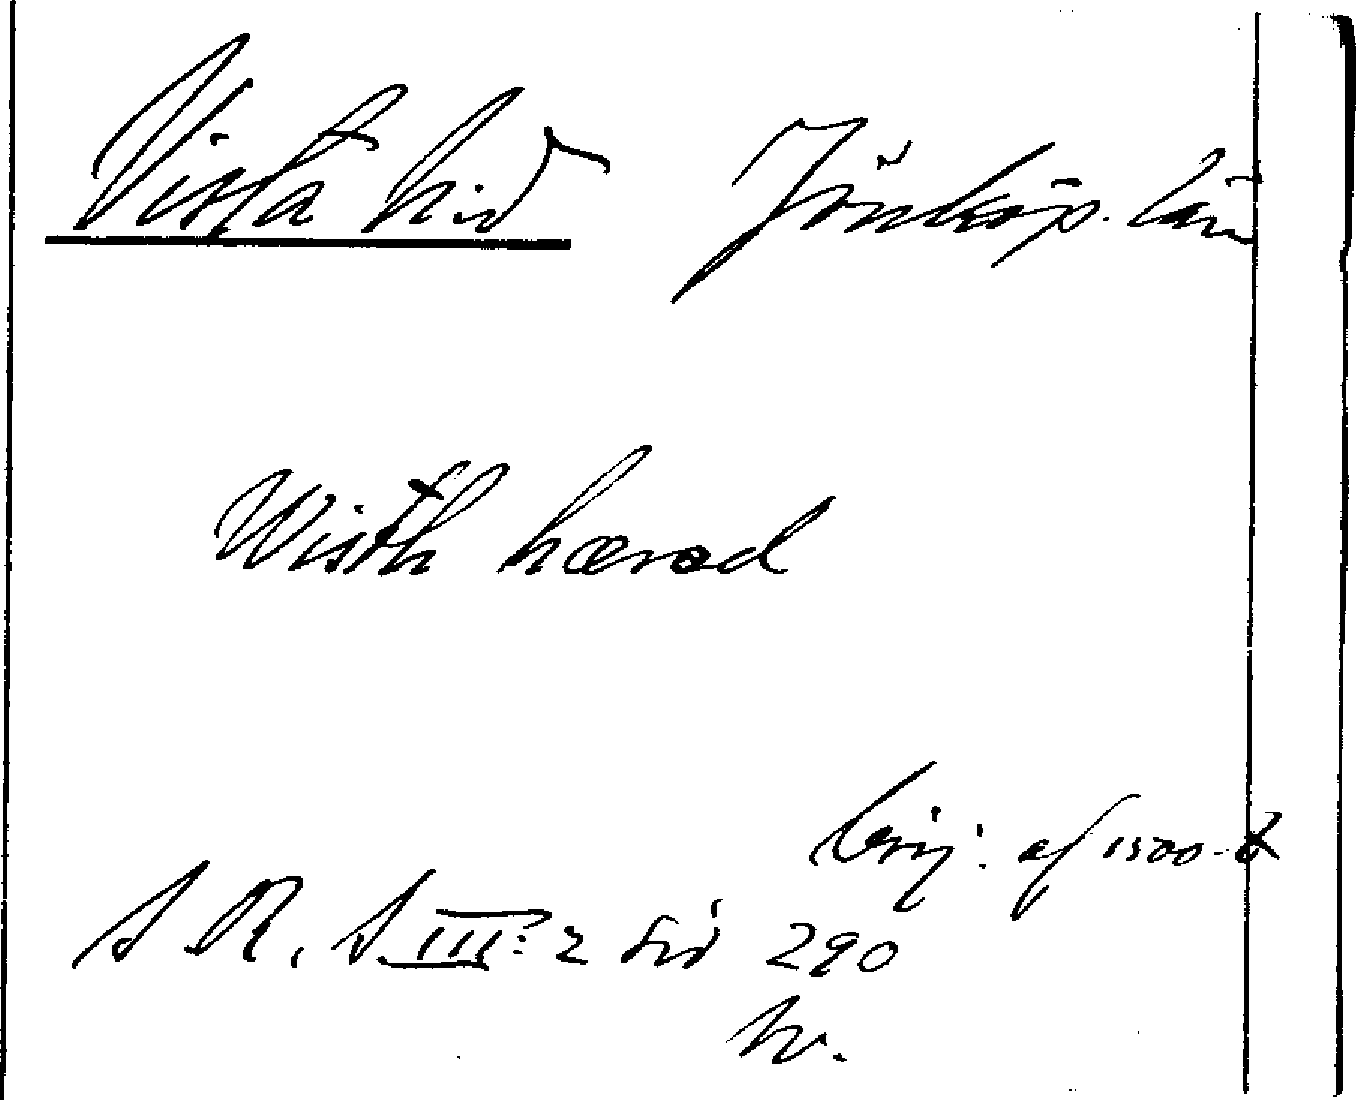 Vista hd Jönköp. län
Wisth hærad
börj. af 1500-t
S. R. S III: 2 sid 290
hr.